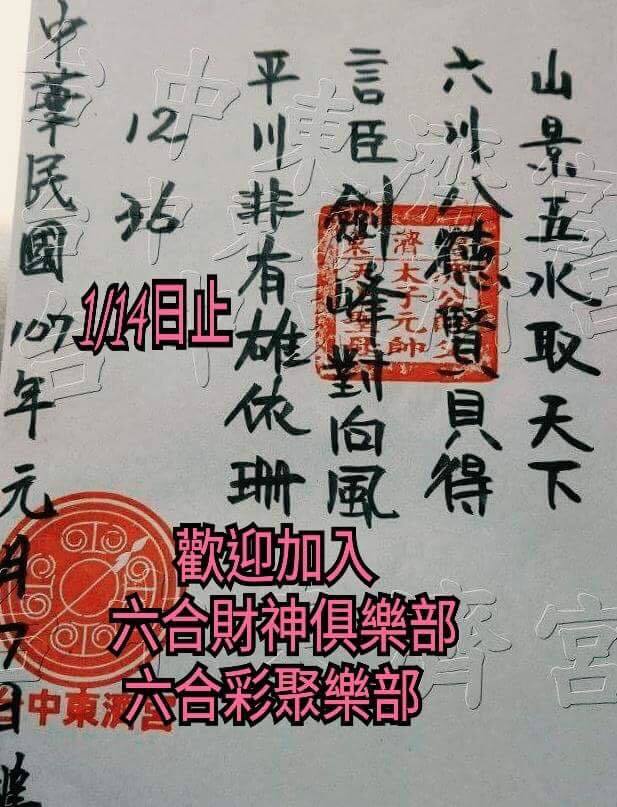 山景五水取天下
六川八德賢貝得
言臣劍峰對向風
平川非有雄依珊
12
36
中華民國107年元月7日
1/14日止
歡迎加入
六合財神俱樂部
六合彩聚樂部
濟太子元帥
台中東濟宮
台中東濟宮